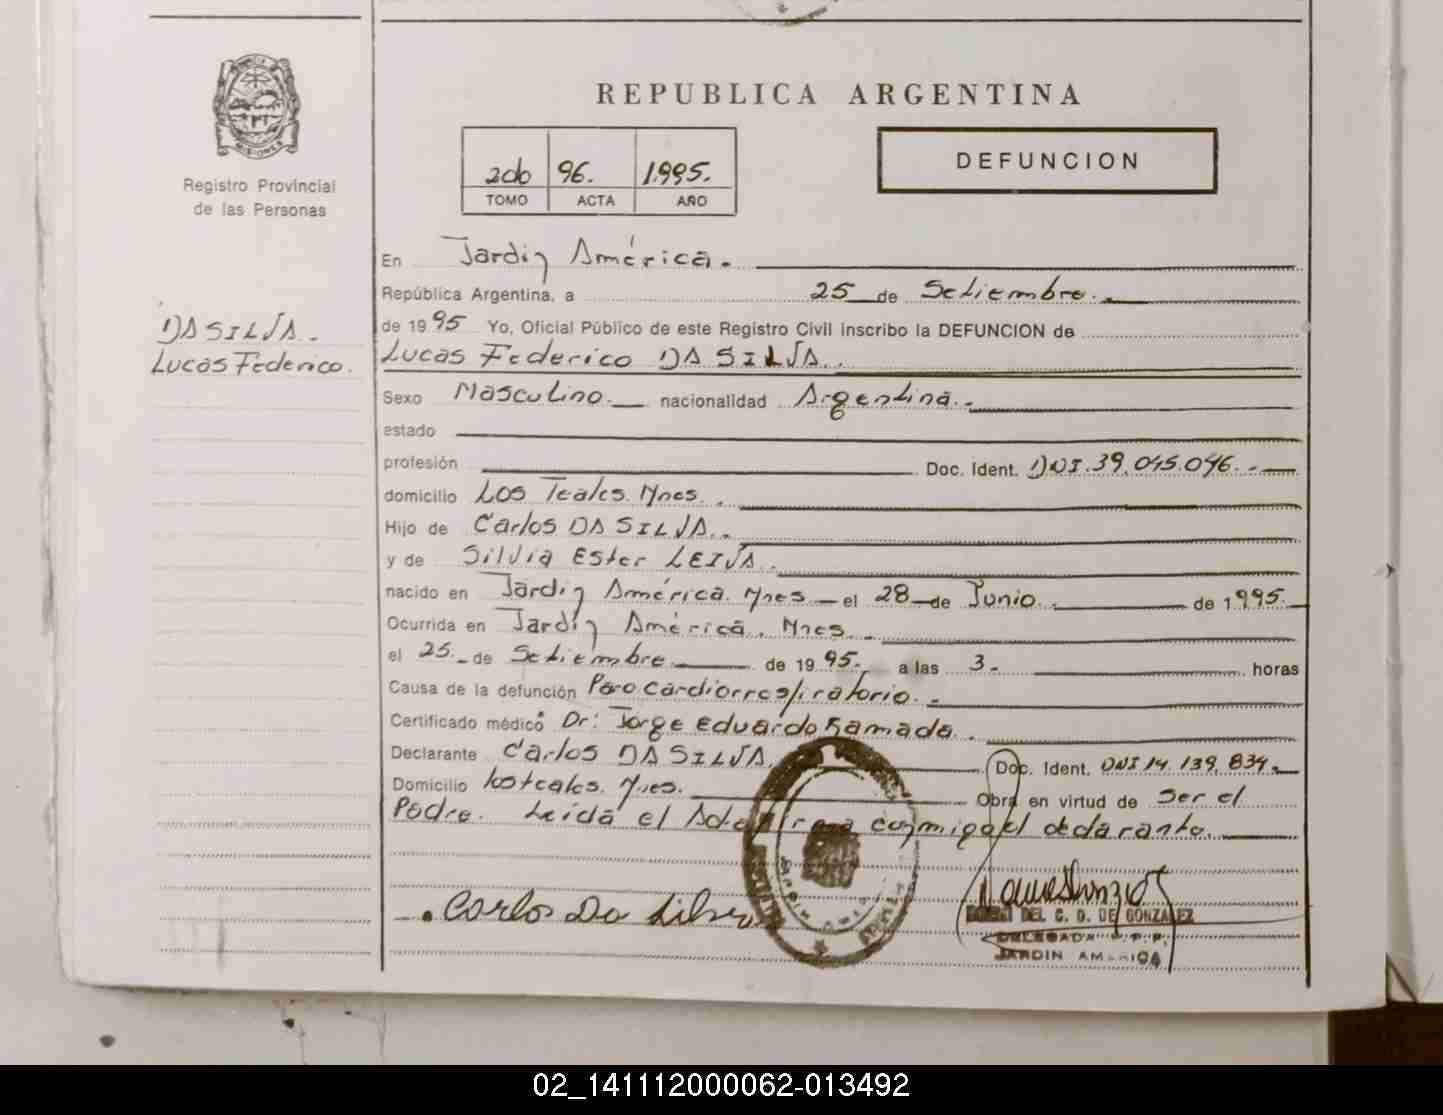 REPUBLICA ARGENTINA
MISIONES
Registro Provincial
de las Personas
2do 96. 1.995.
TOMO ACTA AÑO
DEFUNCION
DA SILVA.
Lucas Federico.
En Jardin América.
República Argentina, a 25 de Setiembre.
de 19 95 Yo, Oficial Público de este Registro Civil inscribo la DEFUNCION de
Lucas Federico DA SILVA.
Sexo Masculino. nacionalidad Argentina.
estado
profesión Doc. Ident. DNI. 39.045.046.
domicilio Los Teales. Mnes.
Hijo de Carlos DA SILVA.
y de Silvia Ester LEIVA.
nacido en Jardin América. Mnes el 28 de Junio. de 1995.
Ocurrida en Jardin América. Mnes.
el 25. de Setiembre de 19 95. a las 3. horas
Causa de la defunción Paro cardiorrespiratorio.
Certificado médico Dr: Jorge Eduardo Ramada.
Declarante Carlos DA SILVA. Doc. Ident. DNI 14.139.834.
Domicilio Los teales. Mnes. Obra en virtud de Ser el
Padre. Leida el Acta firma conmigo el declarante.
Carlos Da Silva
DEL C. D. DE GONZALEZ
DELEGADA R.P.P.
JARDIN AMERICA
02_141112000062-013492